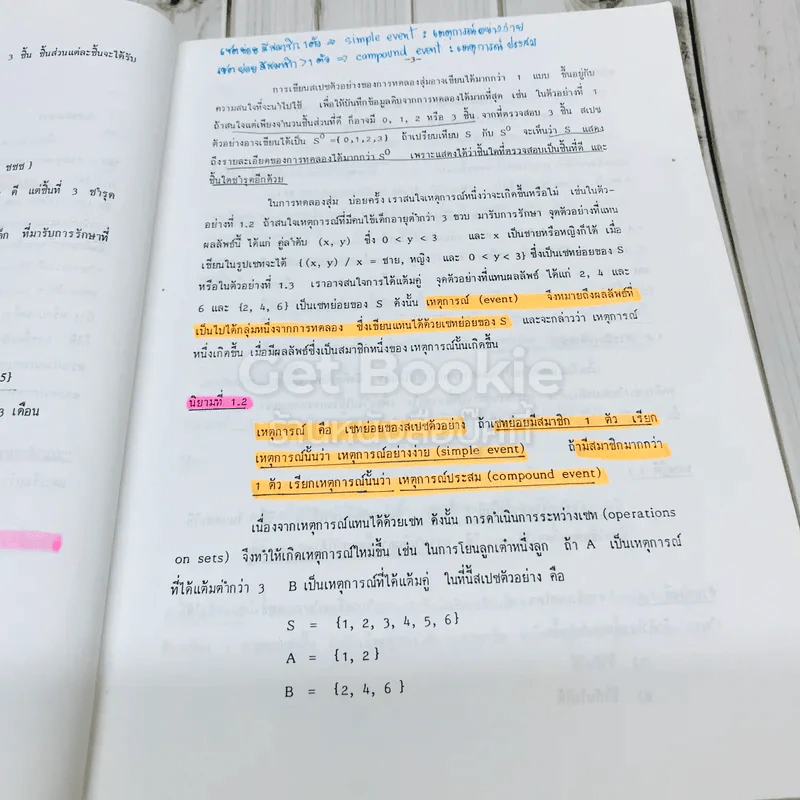 3 ชิ้น ชิ้นส่วนแต่ละชิ้นจะได้รับ
ชชช }
ดี แต่ชิ้นที่ 3 ชำรุด
ที่มารับการรักษาที่
5}
3 เดือน
เซตย่อย มีสมาชิก 1 ตัว ⇒ simple event : เหตุการณ์อย่างง่าย
เซตย่อย มีสมาชิก > 1 ตัว ⇒ compound event : เหตุการณ์ ประสม
-3-
การเขียนสเปซตัวอย่างของการทดลองสุ่มอาจเขียนได้มากกว่า 1 แบบ ขึ้นอยู่กับ
ความสนใจที่จะนำไปใช้ เพื่อให้บันทึกข้อมูลดิบจากการทดลองได้มากที่สุด เช่น ในตัวอย่างที่ 1
ถ้าสนใจแต่เพียงจำนวนชิ้นส่วนที่ดี ก็อาจมี 0, 1, 2 หรือ 3 ชิ้น จากที่ตรวจสอบ 3 ชิ้น สเปซ
ตัวอย่างอาจเขียนได้เป็น S⁰ ={0,1,2,3} ถ้าเปรียบเทียบ S กับ S⁰ จะเห็นว่า S แสดง
ถึงรายละเอียดของการทดลองได้มากกว่า S⁰ เพราะแสดงได้ว่าชิ้นใดที่ตรวจสอบเป็นชิ้นที่ดี และ
ชิ้นใดชำรุดอีกด้วย
ในการทดลองสุ่ม บ่อยครั้ง เราสนใจเหตุการณ์หนึ่งว่าจะเกิดขึ้นหรือไม่ เช่นในตัว-
อย่างที่ 1.2 ถ้าสนใจเหตุการณ์ที่มีคนไข้เด็กอายุต่ำกว่า 3 ขวบ มารับการรักษา จุดตัวอย่างที่แทน
ผลลัพธ์นี้ ได้แก่ คู่ลำดับ (x, y) ซึ่ง 0 < y < 3 และ x เป็นชายหรือหญิงก็ได้ เมื่อ
เขียนในรูปเซทจะได้ {(x, y) / x = ชาย, หญิง และ 0 < y < 3} ซึ่งเป็นเซทย่อยของ S
หรือในตัวอย่างที่ 1.3 เราอาจสนใจการได้แต้มคู่ จุดตัวอย่างที่แทนผลลัพธ์ ได้แก่ 2, 4 และ
6 และ {2, 4, 6} เป็นเซทย่อยของ S ดังนั้น เหตุการณ์ (event) จึงหมายถึงผลลัพธ์ที่
เป็นไปได้กลุ่มหนึ่งจากการทดลอง ซึ่งเขียนแทนได้ด้วยเซทย่อยของ S และจะกล่าวว่า เหตุการณ์
หนึ่งเกิดขึ้น เมื่อมีผลลัพธ์ซึ่งเป็นสมาชิกหนึ่งของ เหตุการณ์นั้นเกิดขึ้น
Get Bookie
ร้านหนังสือบุ๊คกี้
นิยามที่ 1.2
เหตุการณ์ คือ เซทย่อยของสเปซตัวอย่าง ถ้าเซทย่อยมีสมาชิก 1 ตัว เรียก
เหตุการณ์นั้นว่า เหตุการณ์อย่างง่าย (simple event) ถ้ามีสมาชิกมากกว่า
1 ตัว เรียกเหตุการณ์นั้นว่า เหตุการณ์ประสม (compound event)
เนื่องจากเหตุการณ์แทนได้ด้วยเซท ดังนั้น การดำเนินการระหว่างเซท (operations
on sets) จึงทำให้เกิดเหตุการณ์ใหม่ขึ้น เช่น ในการโยนลูกเต๋าหนึ่งลูก ถ้า A เป็นเหตุการณ์
ที่ได้แต้มต่ำกว่า 3 B เป็นเหตุการณ์ที่ได้แต้มคู่ ในที่นี้สเปซตัวอย่าง คือ
S = {1, 2, 3, 4, 5, 6}
A = {1, 2}
B = {2, 4, 6}